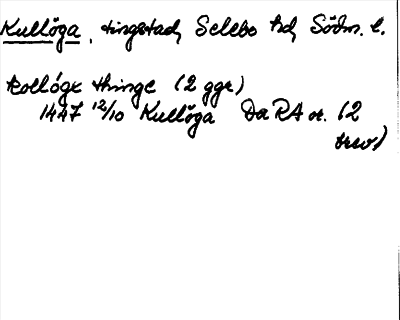 Kullöga, tingstad, Selebo hd, Södm. l.
kolløge thinge (2 ggr)
1447 12/10 Kullöga Da RA or. (2
brev)